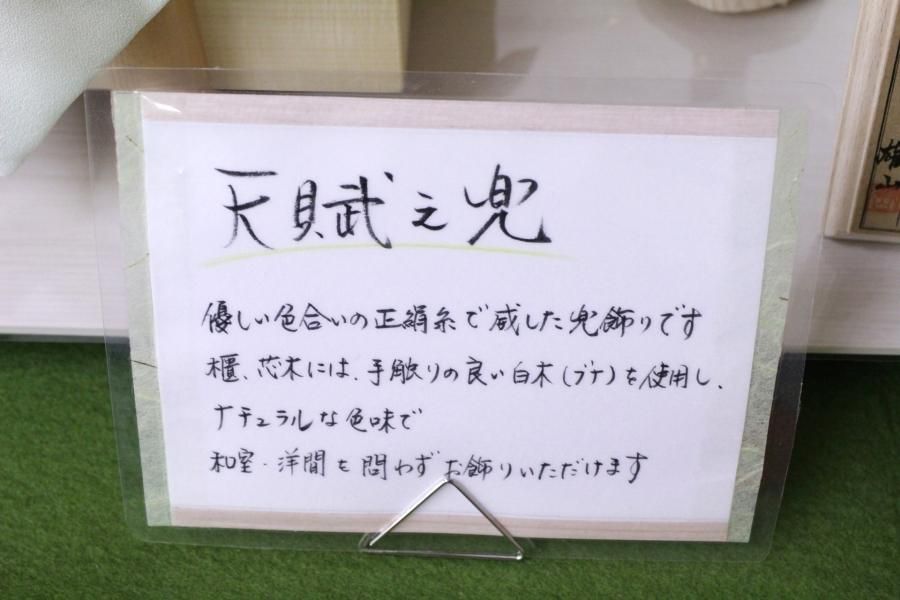 天賦之兜
優しい色合いの正絹糸で威した兜飾りです
櫃、芯木には、手触りの良い白木(ブナ)を使用し、
ナチュラルな色味で
和室・洋間を問わずお飾りいただけます
雄山